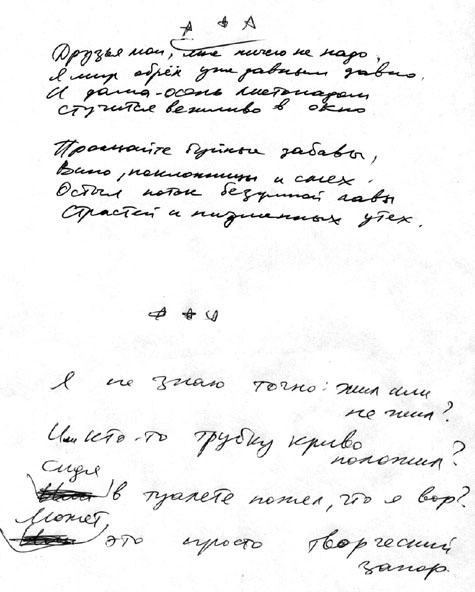 * * *
Друзья мои, мне ничего не надо,
Я мир обрёк уже давным давно.
И дама-осень листопадом
стучится вежливо в окно
Прощайте буйные забавы,
Вино, поклонницы и смех.
Остыл поток безумной лавы
Страстей и низменных утех.
* * *
Я не знаю точно: жил или
не жил?
Или кто-то трубку криво
положил?
Сидя
в туалете понял, что я вор?
Может,
это просто творческий
запор.